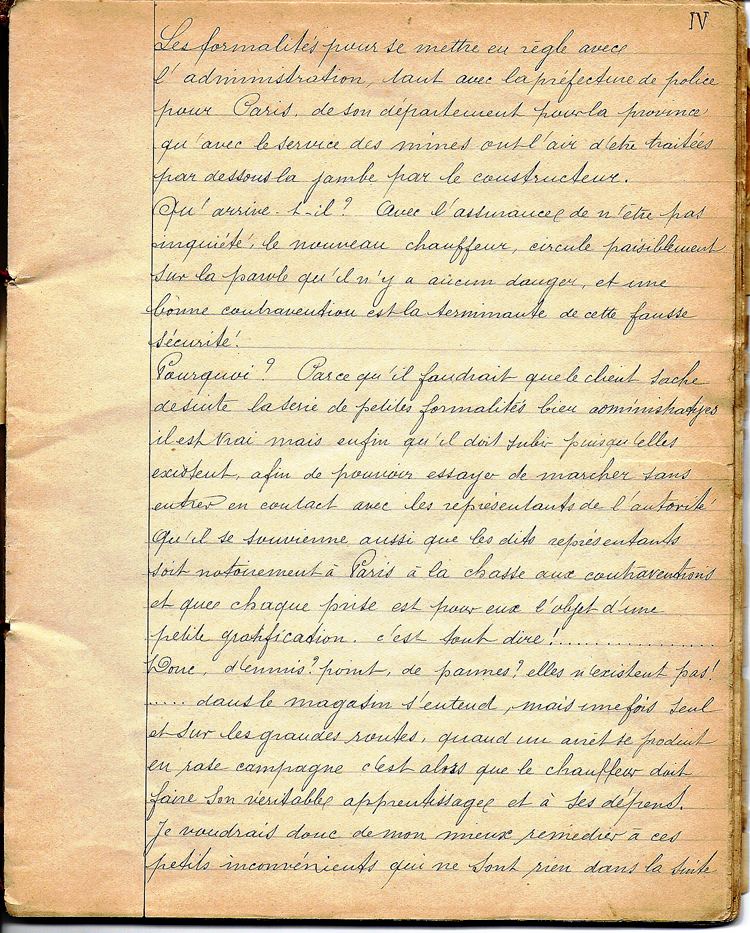 IV
Les formalités pour se mettre en règle avec
l'administration, tant avec la préfecture de police
pour Paris, de son département pour la province
qu'avec le service des mines ont l'air d'etre traitées
par dessous la jambe par le constructeur.
Qu'arrive-t-il? Avec l'assurance de n'être pas
inquiété, le nouveau chauffeur, circule paisiblement
sur la parole qu'il n'y a aucun danger, et une
bonne contravention est la terminante de cette fausse
sécurité.
Pourquoi? Parce qu'il faudrait que le client sache
desuite la serie de petites formalités bien administratives
il est vrai mais enfin qu'il doit subir puisqu'elles
existent, afin de pouvoir essayer de marcher sans
entrer en contact avec les représentants de l'autorité
Qu'il se souvienne aussi que les dits représentants
soit notoirement à Paris à la chasse aux contraventions
et que chaque prise est pour eux l'objet d'une
petite gratification. c'est tout dire!....................
Donc, d'ennuis? point, de pannes? elles n'existent pas!
..... dans le magasin s'entend, mais une fois seul
et sur les grandes routes, quand un arrêt se produit
en rase campagne c'est alors que le chauffeur doit
faire son véritable apprentissage et à ses dépens.
Je voudrais donc de mon mieux remedier à ces
petits inconvénients qui ne sont rien dans la suite